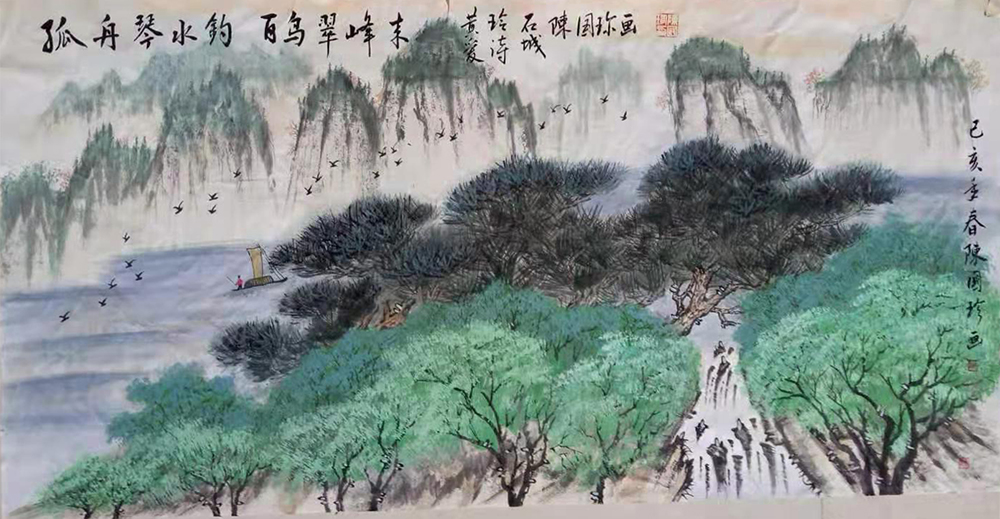 孤舟琴水钓 百鸟翠峰来 黄爱玲诗 石城 陳国珍画
己亥年春陳國珍画